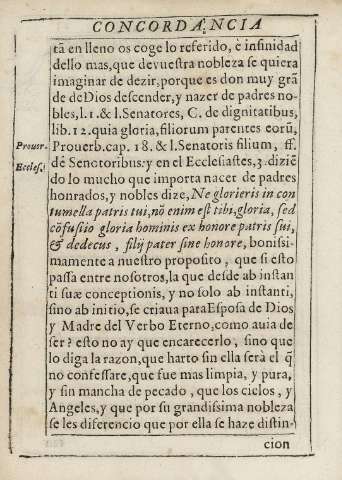 CONCORDÆNCIA
tã en lleno os coge lo referido, è infinidad
dello mas, que devuestra nobleza se quiera
imaginar de dezir, porque es don muy grã
de deDios descender, y nazer de padres no-
bles, l. 1. & l. Senatores, C. de dignitatibus,
lib. 12. quia gloria, filiorum parentes eorũ,
Prouer.
Prouerb. cap. 18. & l. Senatoris filium, ff.
Eccles.
dẽ Senotoribus: y en el Ecclesiastes, 3. diziẽ
do lo mucho que importa nacer de padres
honrados, y nobles dize, Ne glorieris in con
tumella patris tui, nõ enim est tibi, gloria, sed
cõfusio gloria hominis ex honore patris sui,
& dedecus, filij pater sine honore, bonissi-
mamente a nuestro proposito, que si esto
passa entre nosotros, la que desde ab instan
ti suæ conceptionis, y no solo ab instanti,
sino ab initio, se criaua para Esposa de Dios
y Madre del Verbo Eterno, como auia de
ser? esto no ay que encarecerlo, sino que
lo diga la razon, que harto sin ella serà el q̃
no confessare, que fue mas limpia, y pura,
y sin mancha de pecado, que los cielos, y
Angeles, y que por su grandissima nobleza
se les diferencio que por ella se haze distin-
cion